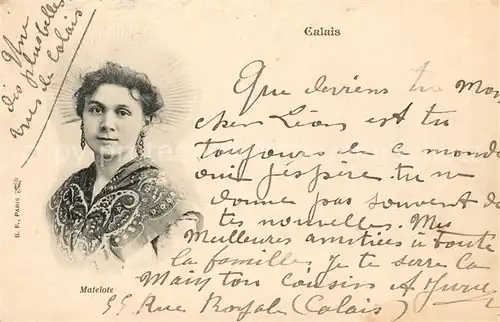 Une
dis plus belles
vues de Calais
Calais
Que deviens tu Mon
cher Léon es tu
toujours de ce monde
oui j'espère tu ne
donne pas souvent de
tes nouvelles. Mes
Meilleures amitiées à toute
la famille, je te serre la
Main ton cousin A
55 Rue Royale (Calais)
B. F., PARIS
Matelote